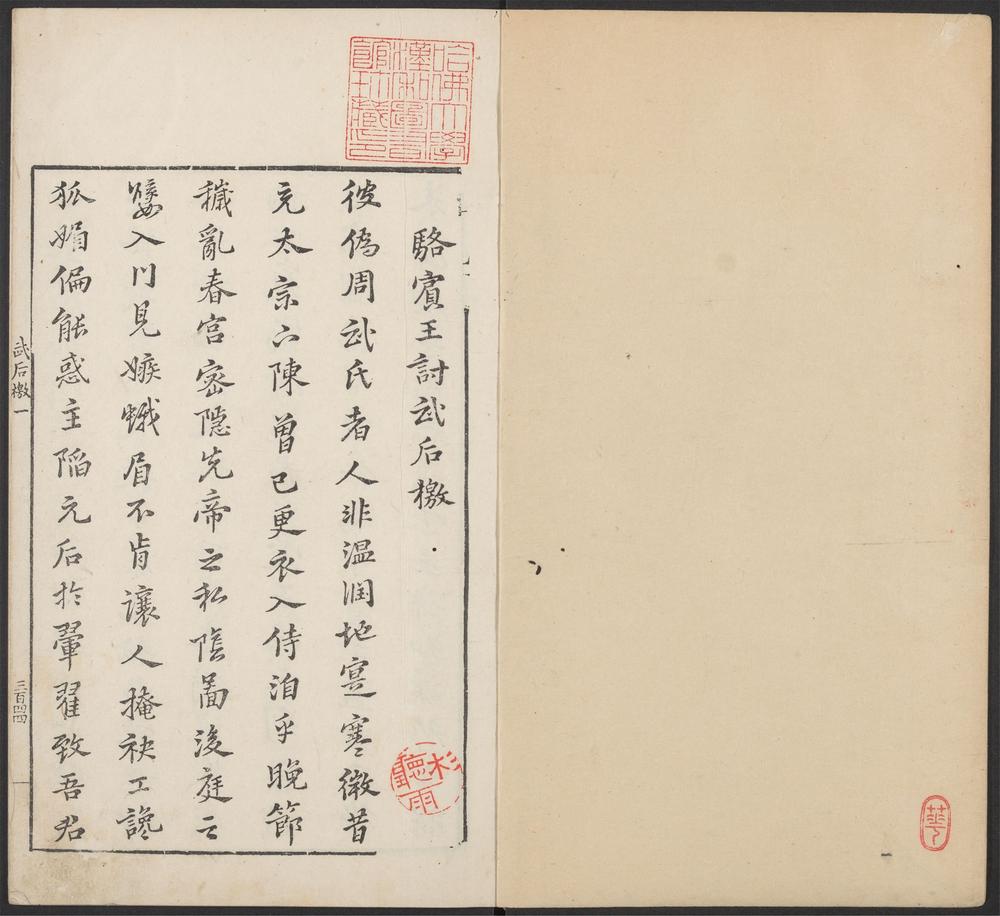 哈佛大學
漢和圖書
館珍藏印
駱賓王討武后檄
彼偽周武氏者人非温潤地寔寒微昔
充太宗下陳曽已更衣入侍洎乎晚節
穢亂春宮密隱先帝之私陰啚後庭之
嬖入門見嫉蛾眉不肯讓人掩袂工讒
狐媚偏能惑主陷元后於翬翟致吾君
武后檄一
三百四四
一
聽雨